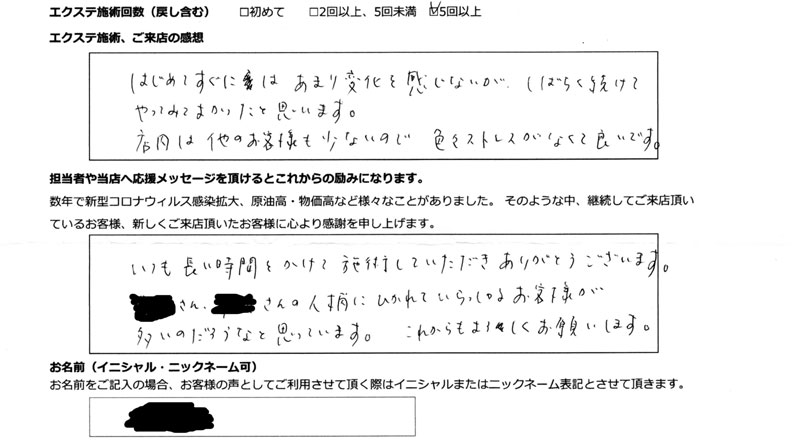 エクステ施術回数（戻し含む） □初めて □2回以上、5回未満 ☑5回以上
エクステ施術、ご来店の感想
はじめてすぐには あまり変化を感じないが、しばらく続けて
やってみてよかったと思います。
店内は他のお客様も少ないので 色々ストレスがなくて良いです。
担当者や当店へ応援メッセージを頂けるとこれからの励みになります。
数年で新型コロナウィルス感染拡大、原油高・物価高など様々なことがありました。 そのような中、継続してご来店頂い
ているお客様、新しくご来店頂いたお客様に心より感謝を申し上げます。
いつも長い時間をかけて施術していただきありがとうございます。
さん、さんの人柄にひかれていらっしゃるお客様が
多いのだろうなと思っています。 これからもよろしくお願いします。
お名前（イニシャル・ニックネーム可）
お名前をご記入の場合、お客様の声としてご利用させて頂く際はイニシャルまたはニックネーム表記とさせて頂きます。